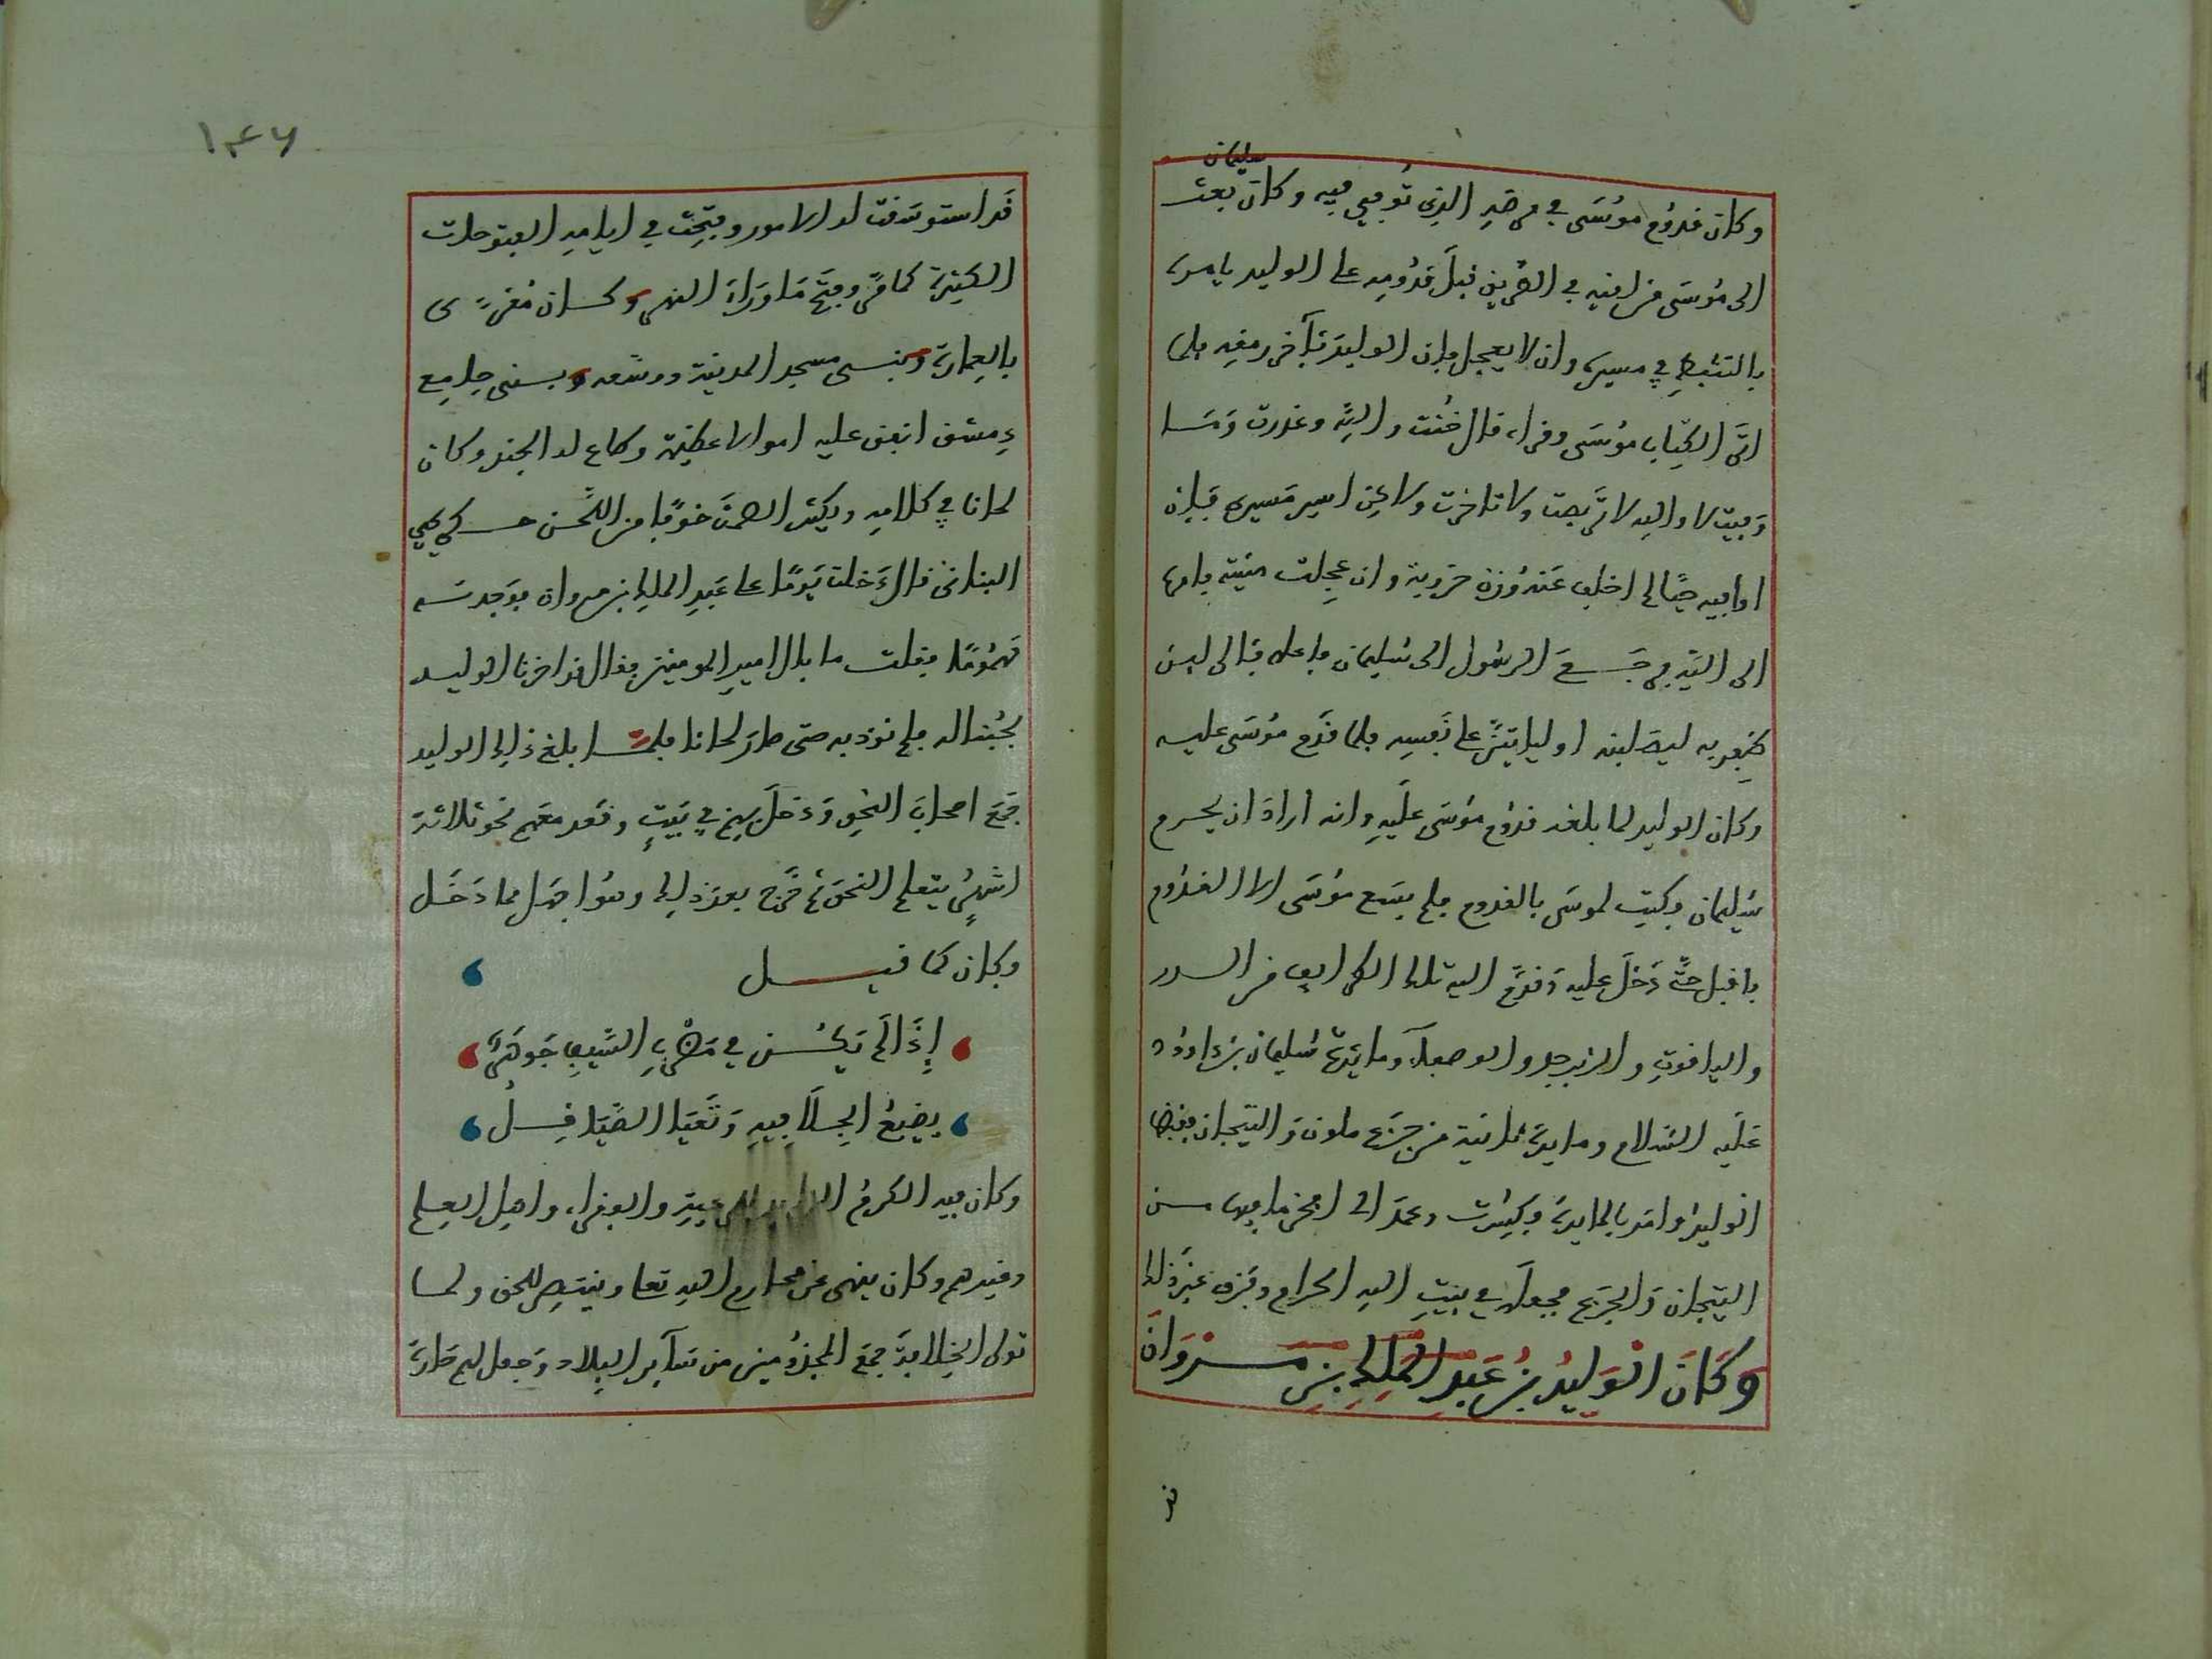 سليمان
وكان قدوم موسى في مرضه الذي توفي فيه وكان بعث
الى موسى من لقيه في الطريق قبل قدومه على الوليد يامره
بالتثبط في مسيره وان لا يعجل فان الوليد بآخر رمقه فلما
اتى الكتاب موسى وقراه قال خنت والله وغدرت وما
وفيت لا والله لا تربصت ولا تاخرت ولاكن اسير مسيري فان
اوافيه حيا لم اخلف عنه وان عجلت منيته فامره
الى الله فرجع الرسول الى سليمان فاعلمه فئالى لين
ظفر به ليصلبنه او لياتين على نفسه فلما قدم موسى عليه
وكان الوليد لما بلغه قدوم موسى عليه وانه اراد ان يحرم
سليمان وكتب لموسى بالقدوم فلم يسع موسى الا القدوم
فاقبل حتى دخل عليه وقدم اليه تلك الطرايف من الدر
والياقوت والزبرجد والوصفاء ومايدة سليمان بن داوود
عليه السلام ومايدة ثانية من جزع ملون والتيجان فقبضها
الوليد وامر بالمايدة فكسرت وعمد الى افخر ما فيها من
التيجان والجزع فجعله في بيت الله الحرام وفرق غير ذلك
وكان الوليد بن عبد الملك بن مروان
قد
١٤٦
قد استوسقت له الامور وفتحت في ايامه الفتوحات
الكثيرة كما مر وفتح ما وراء النهر وكان مغرى
بالعمارة وبنى مسجد المدينة ووسعه وبنى جامع
دمشق انفق عليه اموالا عظيمة وكان
لحانا في كلامه ويكثر الصمت خوفا من اللحن حكي
قال دخلت يوما على عبد الملك بن مروان فوجدته
مهموما فقلت ما بال امير المومنين فقال قد اضرنا الوليد
بحبنا له فلم نودبه حتى صار لحانا فلما بلغ ذلك الوليد
جمع اصحاب النحو ودخل بهم في بيت وقعد معهم نحو ثلاثة
اشهر يتعلم النحو ثم خرج بعد ذلك وهو اجهل مما دخل
وكان كما قيل
إذا لم يكن في مضرب السيف جوهر
يضيع الجلا فيه وتعيا الصياقل
وكان فيه الكرم والفقراء واهل العلم
وغيرهم وكان ينهى عن محارم الله تعا وينتصر للحق ولما
تولى الخلافة جمع المجذومين من ساير البلاد وجعل لهم دارة